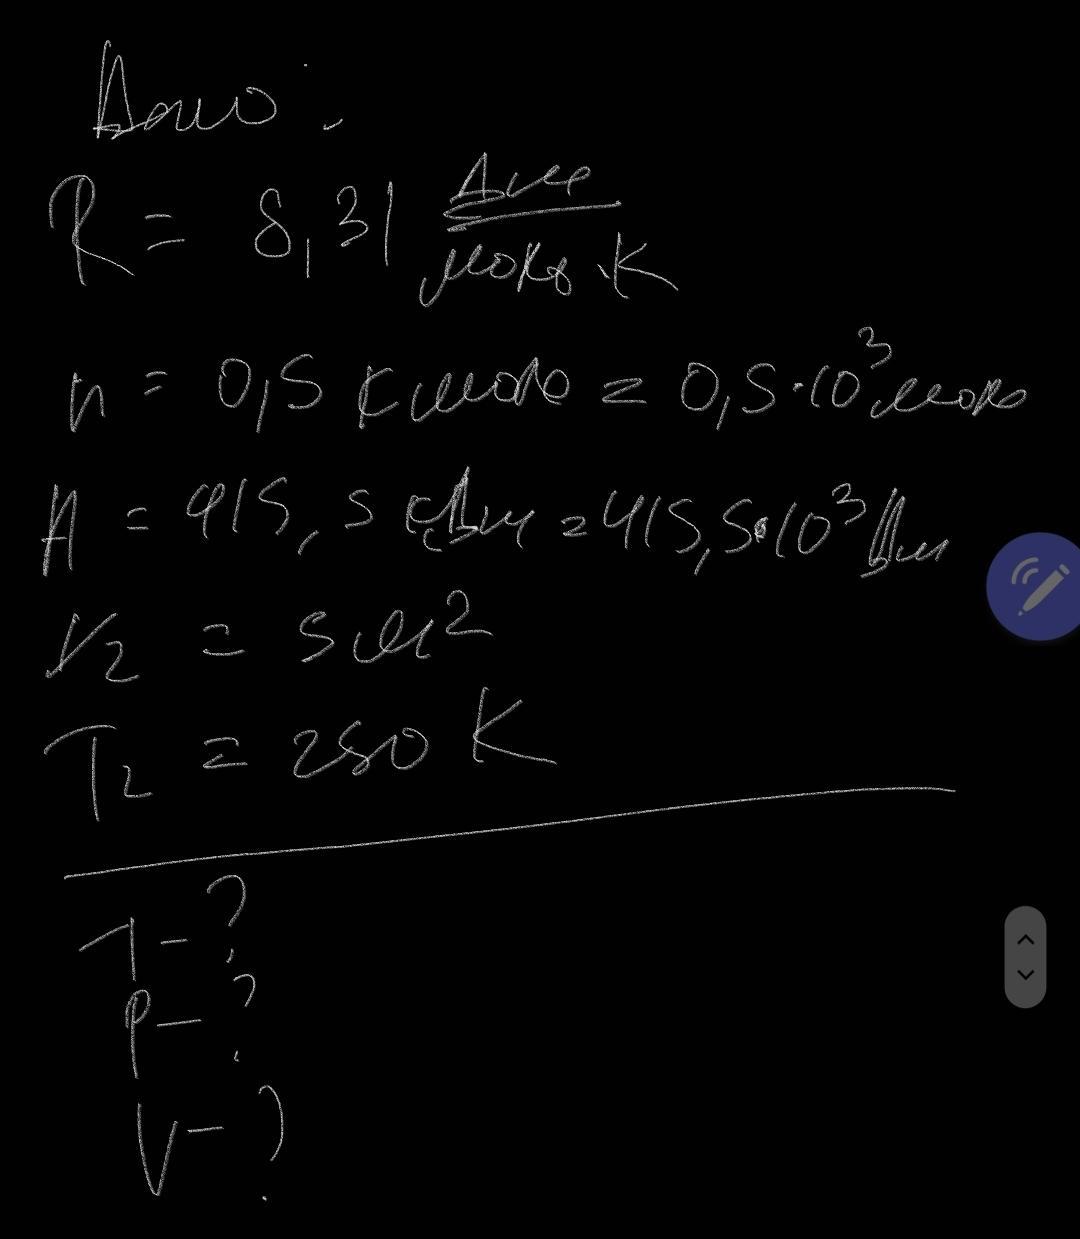 Дано:
R = 8,31 Дж
моль·К
n = 0,5 кмоль = 0,5·10³ моль
A = 415,5 кДж = 415,5·10³ Дж
V₂ = 5 м²
T₂ = 250 K
T - ?
P - ?
V - ?